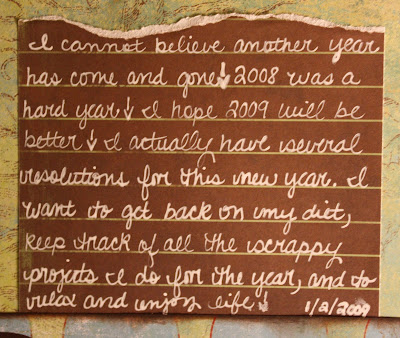 I cannot believe another year
has come and gone! 2008 was a
hard year! I hope 2009 will be
better! I actually have several
resolutions for this new year. I
want to get back on my diet,
keep track of all the scrappy
projects I do for the year, and to
relax and enjoy life! 1/2/2009